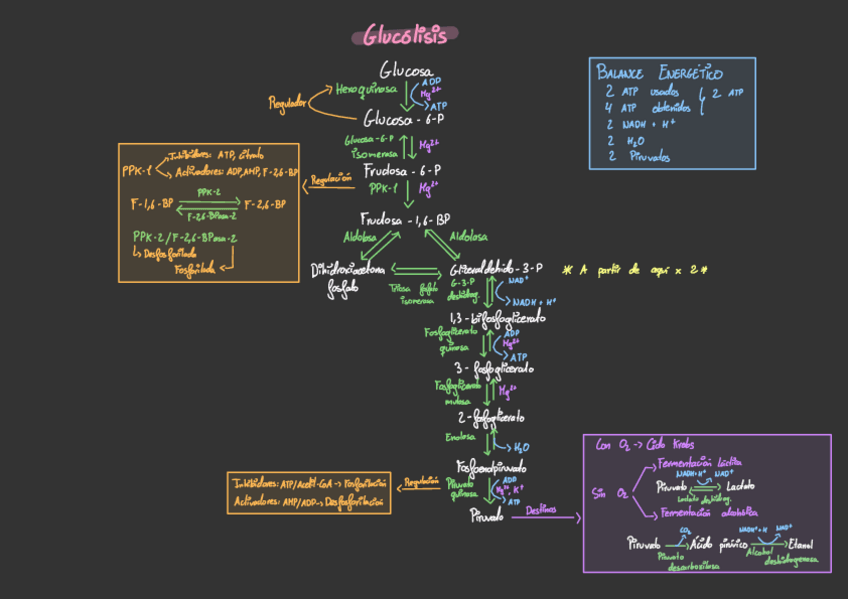 Glucólisis
Glucosa
Hexoquinasa
ADP
Mg²⁺
ATP
Regulador
Glucosa - 6-P
Glucosa-6-P
isomerasa
Mg²⁺
Frudosa - 6-P
PPK-1
Mg²⁺
Regulación
Frudosa - 1,6-BP
Aldolasa
Aldolasa
Dihidroxiacetona
fosfato
Triosa fosfato
isomerasa
Gliceraldehido-3-P
* A partir de aquí x 2 *
G-3-P
deshidrog.
NAD⁺
NADH + H⁺
1,3-bifosfoglicerato
Fosfoglicerato
quinasa
ADP
Mg²⁺
ATP
3-fosfoglicerato
Fosfoglicerato
mutasa
Mg²⁺
2-fosfoglicerato
Enolasa
H₂O
Fosfoenolpiruvato
Piruvato
quinasa
ADP
Mg²⁺, K⁺
ATP
Regulación
Piruvato
Destinos
BALANCE ENERGÉTICO
2 ATP usados
4 ATP obtenidos
2 ATP
2 NADH + H⁺
2 H₂O
2 Piruvatos
PPK-1
Inhibidores: ATP, Citrato
Activadores: ADP, AMP, F-2,6-BP
F-1,6-BP
PPK-2
F-2,6-BPasa-2
F-2,6-BP
PPK-2/F-2,6-BPasa-2
Desfosforilada
Fosforilada
Inhibidores: ATP/Acetil-CoA → Fosforilación
Activadores: AMP/ADP → Desfosforilación
Con O₂ → Ciclo Krebs
Sin O₂
Fermentación láctica
NADH+H⁺
NAD⁺
Piruvato
Lactato
Lactato deshidrog.
Fermentación alcohólica
CO₂
NADH + H
NAD⁺
Piruvato
Ácido pirúvico
Etanol
Piruvato
descarboxilasa
Alcohol
deshidrogenasa